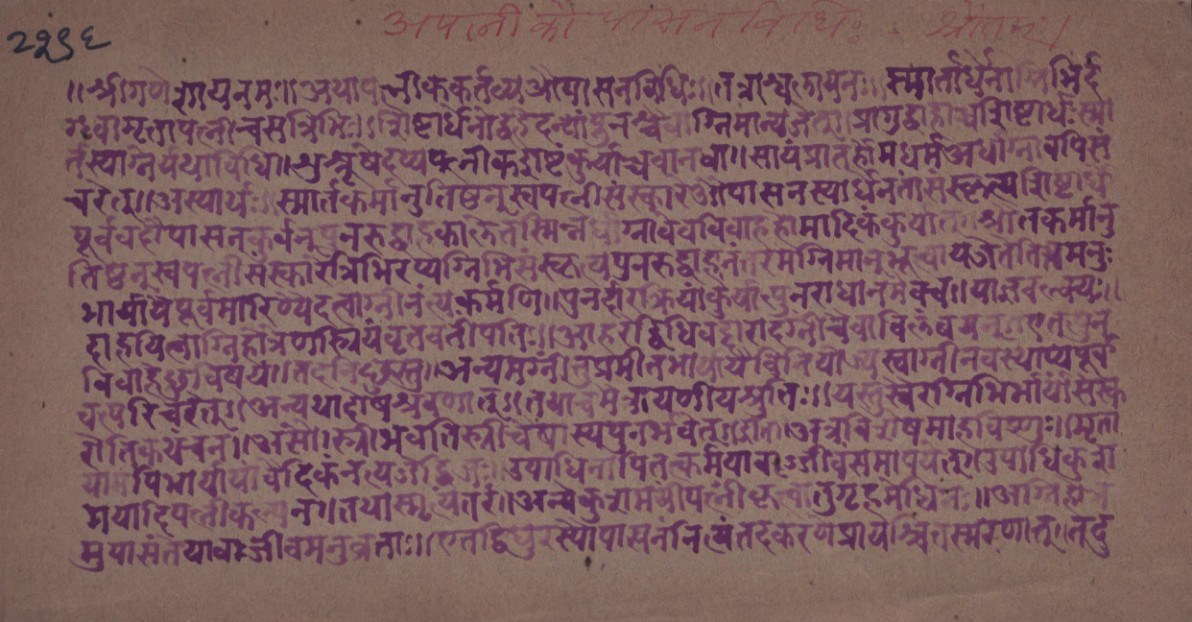 अपत्नीकौपासनविधिः श्रौतम्।
२९९६
॥श्रीगणेशायनमः॥अथापत्नीककर्तव्यऔपासनविधिः॥तत्राश्वलायनः॥स्मार्तार्धेनाग्निभिर्द
ग्ध्वागृतापत्नीन्चसत्रिभिः॥शिष्टार्धेनोद्वहेदन्यांपुनश्चैवाग्निमान्यजेत्॥प्रागुद्वाहाच्चशिष्टार्धेस्मा
र्तस्याग्नेर्यथाविधि॥शुश्रूषेदप्यपत्नीकइष्टिंकुर्याच्चवानवा॥सायंप्रातर्होमधर्मअर्धाग्नावपिसं
चरेत्॥अस्यार्थः॥स्मार्तकर्मानुतिष्ठन्स्वपत्नीसंस्कारेऔपासनस्यार्धेनतांसंस्कृत्यशिष्टार्धे
पूर्ववदौपासनंकुर्वन्पुनरुद्वाहकालेतस्मिन्नर्धाग्नावेवविवाहहोमादिकंकुर्यात्॥श्रौतकर्मानु
तिष्ठन्स्वपत्नीसंस्कारंत्रिभिरप्यग्निभिःसंस्कृत्यपुनरुद्वाहानंतरमग्निमान्भूत्वायजेतेति॥मनुः
भार्यायैपूर्वमारिण्यैदत्वाग्नीनंत्यकर्मणि॥पुनर्दारक्रियांकुर्यात्पुनराधानमेवच॥याज्ञवल्क्यः॥
दाहयित्वाग्निहोत्रेणस्त्रियंवृत्तवतींपतिः॥आहरेद्विधिवद्दारानग्नींश्चैवाविलंबयन्॥एतत्पुन
र्विवाहेछुविषयं॥तदनिच्छुस्तु॥अन्यमग्नींतुप्रमीतभार्यायैविनियोज्यस्वाग्नीनवस्थाप्यपूर्व
वत्परिचरेत्॥अन्यथादोषश्रवणात्॥तथाचमैत्रायणीयश्रुतिः॥यस्तुस्वैरग्निभिर्भार्यांसंस्क
रोतिकथंचन॥असौस्त्रीभवतिस्त्रीचैषास्यपुनर्भवेत्॥इति॥अत्रविशेषमाहविष्णुः॥मृता
यामपिभार्यायांवैदिकंनत्यजेद्द्विजः॥उपाधिनापितत्कर्मयावज्जीवंसमापयेत्॥उपाधिकुश
मयादिपत्नीकल्पनं॥तथास्मृत्यंतरे॥अन्येकुशमयींपत्नींकृत्वातुगृहमेधिनः॥अग्निहोत्र
मुपासंतेयावज्जीवमनुव्रताः॥एतद्विधुरस्यौपासनंनित्यंतदकरणेप्रायश्चित्तस्मरणात्॥तदु